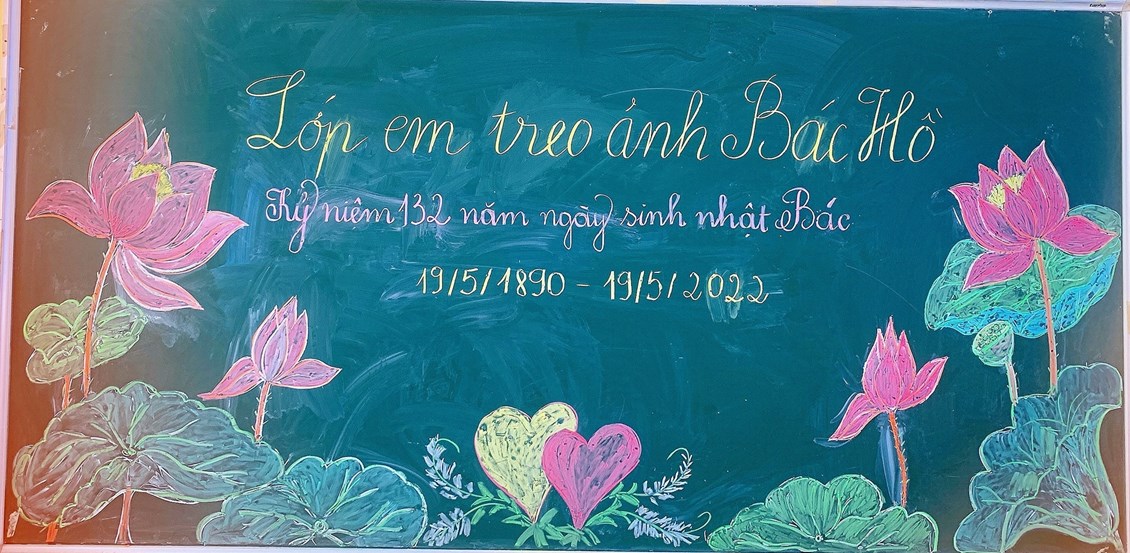 Lớp em treo ảnh Bác Hồ
Kỷ niệm 132 năm ngày sinh nhật Bác
19/5/1890 - 19/5/2022